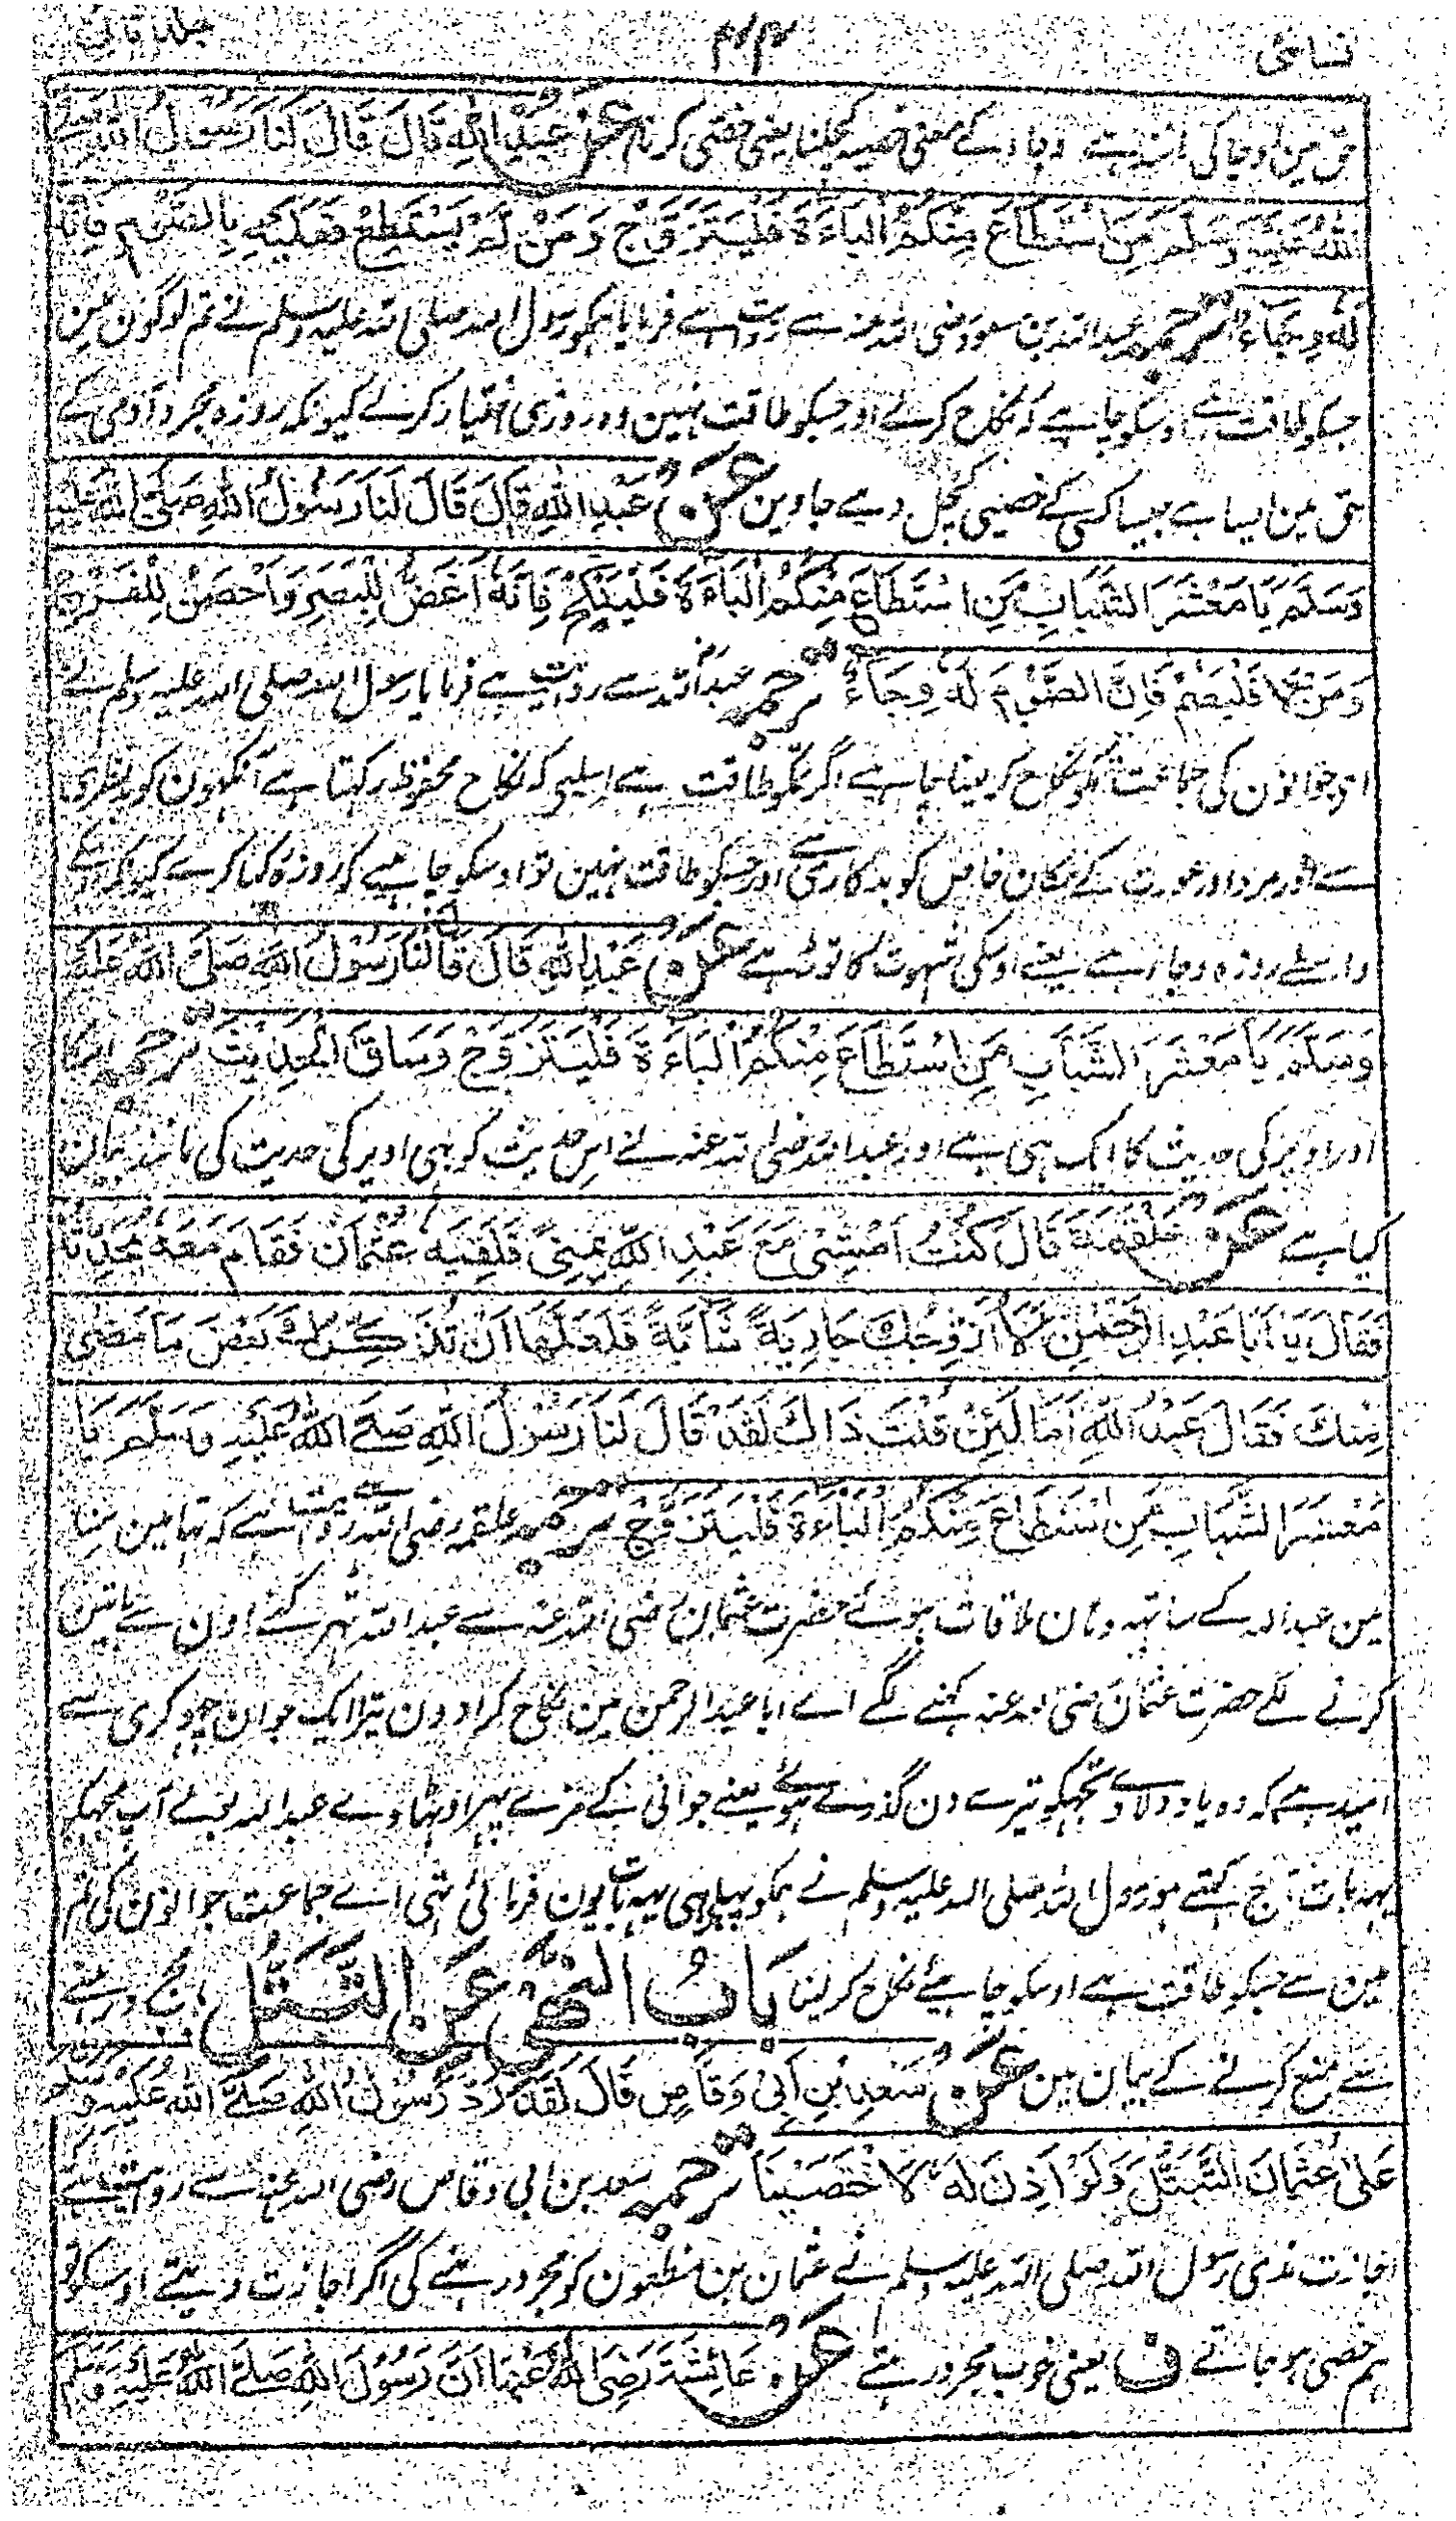 نسائی ۳۴ جلد ثانی
حق مین وجا کی مانند ہے وجاء کے معنی خصیہ کچلنا یعنی خصی کرنا عَنْ عَبْدِ اللّٰهِ قَالَ قَالَ لَنَا رَسُوْلُ اللّٰهِ صَلَّى
اللّٰهُ عَلَيْهِ وَسَلَّمَ مَنِ اسْتَطَاعَ مِنْكُمُ الْبَاءَةَ فَلْيَتَزَوَّجْ وَمَنْ لَمْ يَسْتَطِعْ فَعَلَيْهِ بِالصَّوْمِ فَاِنَّهٗ
لَهٗ وِجَاءٌ ترجمہ عبد اللہ بن مسعود رضی اللہ عنہ سے روایت ہے فرمایا ہمکو رسول اللہ صلی اللہ علیہ وسلم نے تم لوگون مین
جسکو طاقت ہے اوسکو چاہیے کہ نکاح کرلے اور جسکو طاقت نہین وہ روزی اختیار کرلے کیونکہ روزہ مجرد آدمی کے
حق مین ایسا ہے جیسا کسی کے خصیی کچل دیے جاوین عَنْ عَبْدِ اللّٰهِ قَالَ قَالَ لَنَا رَسُوْلُ اللّٰهِ صَلَّى اللّٰهُ عَلَيْهِ
وَسَلَّمَ يَا مَعْشَرَ الشَّبَابِ مَنِ اسْتَطَاعَ مِنْكُمُ الْبَاءَةَ فَلْيَنْكِحْ فَاِنَّهٗ اَغَضُّ لِلْبَصَرِ وَاَحْصَنُ لِلْفَرْجِ
وَمَنْ لَا فَلْيَصُمْ فَاِنَّ الصَّوْمَ لَهٗ وِجَاءٌ ترجمہ عبد اللہ سے روایت ہے فرمایا رسول اللہ صلی اللہ علیہ وسلم نے
او جوانون کی جماعت تمکو نکاح کرلینا چاہیے اگر تمکو طاقت ہے اسلیی کہ نکاح محفوظ رکہتا ہے آنکہون کو بدنظری
سے اور مرد اور عورت کے مکان خاص کو بدکاری سے اور جسکو طاقت نہین تو اوسکو چاہیے کہ روزہ رکہا کرے کیونکہ اسکے
واسطے روزہ وجاء ہے یعنے اوسکی شہوت کا توڑ ہے عَنْ عَبْدِ اللّٰهِ قَالَ قَالَ لَنَا رَسُوْلُ اللّٰهِ صَلَّى اللّٰهُ عَلَيْهِ
وَسَلَّمَ يَا مَعْشَرَ الشَّبَابِ مَنِ اسْتَطَاعَ مِنْكُمُ الْبَاءَةَ فَلْيَتَزَوَّجْ وَسَاقَ الْحَدِيْثَ ترجمہ اسکا
اور اوپر کی حدیث کا ایک ہی ہے اور عبد اللہ رضی اللہ عنہ نے اس حدیث کو بہی اوپر کی حدیث کی مانند بیان
کیا ہے عَنْ عَلْقَمَةَ قَالَ كُنْتُ اَمْشِيْ مَعَ عَبْدِ اللّٰهِ بِمِنًى فَلَقِيَهٗ عُثْمَانُ فَقَامَ مَعَهٗ يُحَدِّثُهٗ
فَقَالَ يَا اَبَا عَبْدِ الرَّحْمٰنِ اَلَا اُزَوِّجُكَ جَارِيَةً شَابَّةً فَلَعَلَّهَا اَنْ تُذَكِّرَكَ بَعْضَ مَا مَضٰى
مِنْكَ فَقَالَ عَبْدُ اللّٰهِ اَمَا لَئِنْ قُلْتَ ذَاكَ لَقَدْ قَالَ لَنَا رَسُوْلُ اللّٰهِ صَلَّى اللّٰهُ عَلَيْهِ وَسَلَّمَ يَا
مَعْشَرَ الشَّبَابِ مَنِ اسْتَطَاعَ مِنْكُمُ الْبَاءَةَ فَلْيَتَزَوَّجْ ترجمہ علقمہ رضی اللہ سے روایت ہے کہ تہا مین منا
مین عبد اللہ کے ساتہہ وہان ملاقات ہوئے حضرت عثمان رضی اللہ عنہ سے عبد اللہ ٹہر گئے اون سے باتین
کرنے لگے حضرت عثمان رضی اللہ عنہ کہنے لگے اے ابا عبد الرحمن مین نکاح کرادون تیرا ایک جوان چہوکری سے
امید ہے کہ وہ یاد دلاوے تجہکو تیرے دن گذرے ہوئے یعنے جوانی کے مزے پہر اوٹہاوے عبد اللہ بولے آپ مجہکو
یہہ بات آج کہتے ہو رسول اللہ صلی اللہ علیہ وسلم نے ہمکو پہلے ہی یہہ بات یون فرمائی تہی اے جماعت جوانون کی تم
مین سے جسکو طاقت ہے اوسکو چاہیئے نکاح کرلینا بَابُ النَّهْيِ عَنِ التَّبَتُّلِ مجرد رہنے
سے منع کرنے کے بیان مین عَنْ سَعْدِ بْنِ اَبِيْ وَقَّاصٍ قَالَ لَقَدْ رَدَّ رَسُوْلُ اللّٰهِ صَلَّى اللّٰهُ عَلَيْهِ وَسَلَّمَ
عَلٰى عُثْمَانَ التَّبَتُّلَ وَلَوْ اَذِنَ لَهٗ لَاخْتَصَيْنَا ترجمہ سعد بن ابی وقاص رضی اللہ عنہ سے روایت ہے
اجازت ندی رسول اللہ صلی اللہ علیہ وسلم نے عثمان بن مظعون کو مجرد رہنے کی اگر اجازت دیتے اوسکو تو
ہم خصی ہوجاتے ف یعنی خوب مجرد رہتے عَنْ عَائِشَةَ رَضِيَ اللّٰهُ عَنْهَا اَنَّ رَسُوْلَ اللّٰهِ صَلَّى اللّٰهُ عَلَيْهِ وَسَلَّمَ